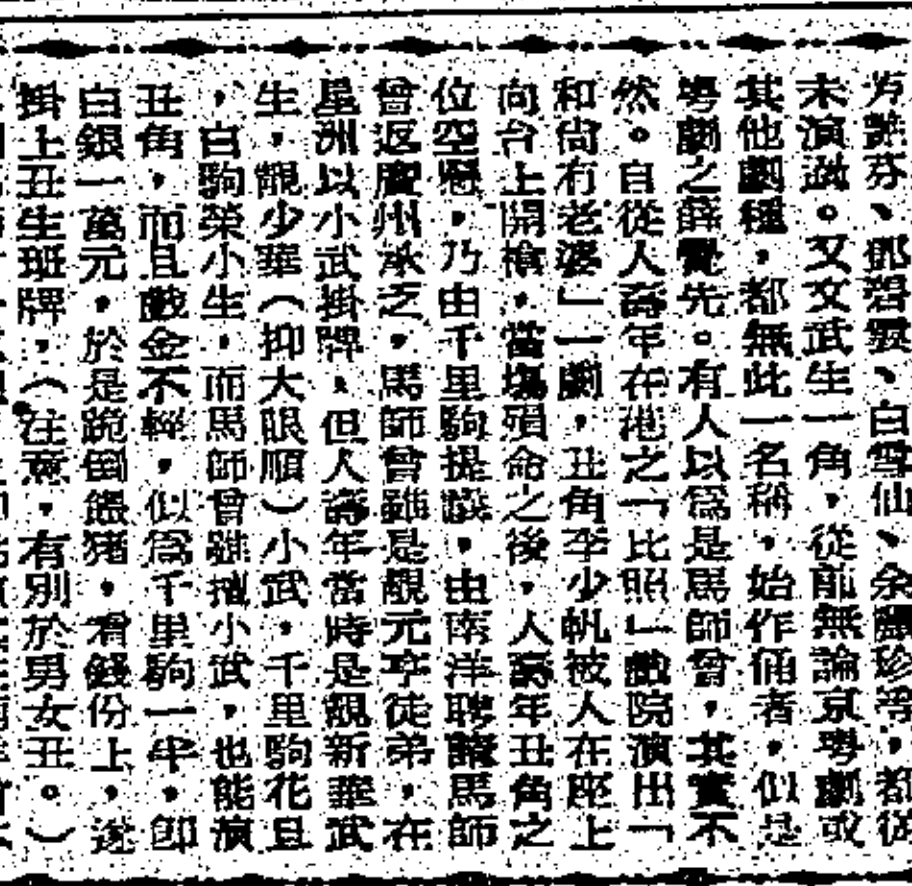 芳艷芬、鄧碧雲、白雪仙、余麗珍等，都從
未演過。文文武生一角，從前無論京粵劇或
其他劇種，都無此一名稱，始作俑者，似是
粵劇之薛覺先。有人以爲是馬師曾，其實不
然。自從人壽年在港之「比照」戲院演出「
和尚有老婆」一劇，丑角李少帆被人在座上
向台上開槍，當塲殞命之後，人壽年丑角之
位空懸，乃由千里駒提議，由南洋聘請馬師
曾返廣州承乏，馬師曾雖是靚元亨徒弟，在
星洲以小武掛牌，但人壽年當時是靚新華武
生，靚少華（抑大眼順）小武，千里駒花旦
，白駒榮小生，而馬師曾雖擅小武，也能演
丑角，而且戲金不輕，似爲千里駒一半，卽
白銀一萬元，於是跪倒餵猪，看錢份上，遂
掛上丑生班牌，（注意，有別於男女丑。）